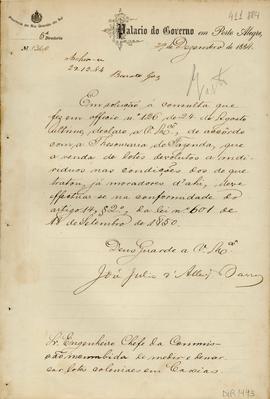 411.884
Provincia do Rio Grande do Sul
Palacio do Governo em Porto Alegre,
6ª Directoria
29 de Dezembro de 1884.
N.
29.12.84
Em solução á consulta que
fez em officio nº 126 de 24 de Agosto
ultimo, declaro a V. Mcê, de accôrdo
com a Thesouraria de Fazenda, que
a venda de lotes devolutos a indi-
viduos nas condições dos de que
tratou, já moradores d'ahi, deve
effectuar-se na conformidade do
artigo 14, § 2º, da lei nº 601 de
18 de Setembro de 1850.
Deus Guarde a V. Mcê
José Julio d'Albuq. Barros
Sr. Engenheiro Chefe da Commis-
são incumbida de medir e demar-
car lotes coloniaes em Caxias.